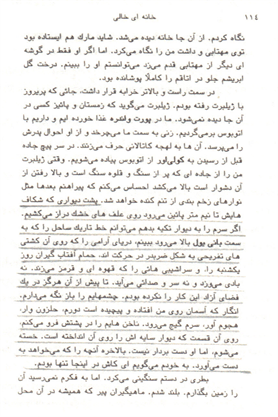 ۱۱۴ خانه ای خالی
نگاه کردم. از آن جا خانه دیده می‌شد. شاید مارك هم ایستاده بود
توی مهتابی و داشت من را نگاه می‌کرد. اما اگر او فقط در گوشه
ای دیگر از مهتابی قدم می‌زد می‌توانستم او را ببینم. درخت گل
ابریشم جلو در اتاقم را کاملاً پوشانده بود.
در سمت راست و بالاتر خرابه قرار داشت، جائی که پریروز
با ژیلبرت رفته بودم. ژیلبرت می‌گوید که زمستان و پائیز کسی در
آن جا دیده نمی‌شود. ما در پورت واندره غذا خورده ایم و داریم با
اتوبوس برمی‌گردیم. زنی به سمت ما می‌چرخد و از او احوال پدرش
را می‌پرسد. آن ها به لهجه کاتالانی حرف می‌زنند. در سر پیچ جاده
قبل از رسیدن به کولی‌اور از اتوبوس پیاده می‌شویم. وقتی ژیلبرت
من را از جاده ای که پر از سنگ و قلوه سنگ است و بالا رفتن از
آن دشوار است بالا می‌کشد احساس می‌کنم که پیراهنم بعدها مثل
نوارهای زخم بندی از تنم کنده خواهد شد. پشت دیواری که شکاف
هایش تا نیم متر پائین می‌رود روی علف های خشك دراز می‌کشیم.
اگر سرم را به دیوار تکیه بدهم می‌توانم خط تاریك ساحل را که به
سمت بانی یول بالا می‌رود ببینم، دریای آرامی را که روی آن کشتی
های تفریحی به شکل ضربدر در حرکت اند، حمام آفتاب گیران روز
یکشنبه را، و سراشیبی هائی را که قهوه ای و قرمز می‌زنند. نه
بادی می‌وزد و نه سر و صدائی می‌آید. تا پیش از آن هرگز در یك
فضای آزاد این کار را نکرده بودم. چشمهایم را باز نگه می‌دارم.
انگار که آسمان روی من افتاده و پیچیده است دورم، حلزون وار،
هجوم آور. سرم گیج می‌رود. ناخن هایم را در پشتش فرو می‌کنم،
روی آن قسمت که دیوار سایه اش را روی آن انداخته است. خسته
می‌شوم، اما او دست بردار نیست. بالاخره آنچه را که می‌خواهد به
دست می‌آورد. به خودم می‌گویم ای کاش در اینجا تنها بودم.
بطری در دستم سنگینی می‌کرد. اما به فکرم نمی‌رسید آن
را زمین بگذارم. بلند شدم. ماهیگیران پیر که همیشه در آن محل